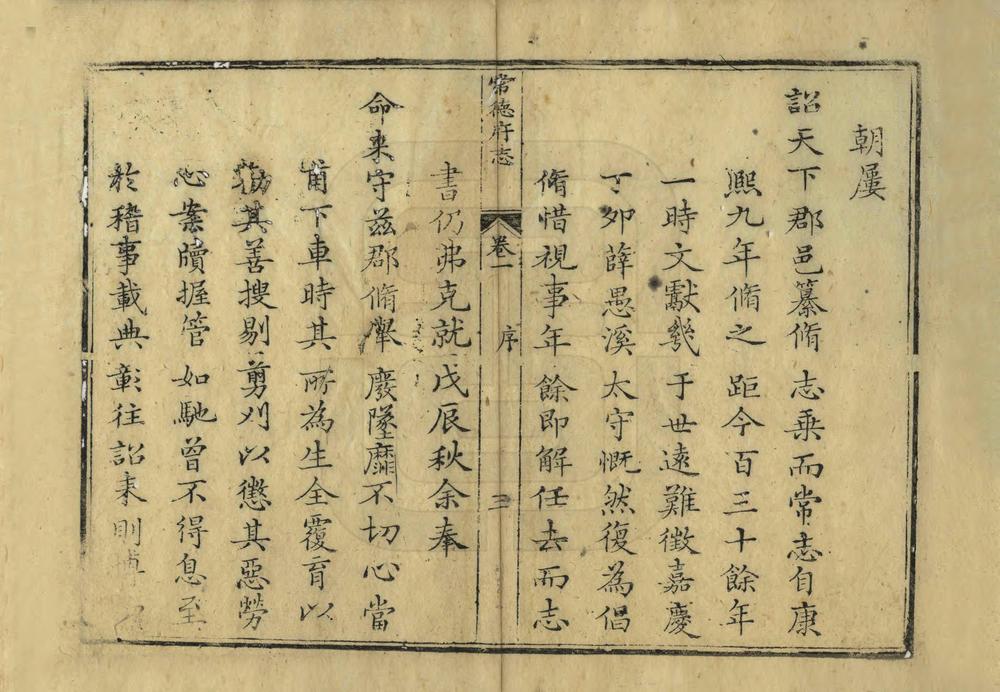 朝屢
詔天下郡邑纂脩志乗而常志自康
熙九年脩之距今百三十餘年
一時文獻幾于世遠難徵嘉慶
丁夘薛愚溪太守慨然復為倡
脩惜視事年餘即解任去而志
常德府志
卷一
序
三
書仍弗克就戊辰秋余奉
命来守兹郡脩舉廢墜靡不切心當
甫下車時其所為生全覆育以
其善搜剔剪刈以懲其惡勞
心案牘握管如馳曾不得息至
於稽事載典彰往詔来則